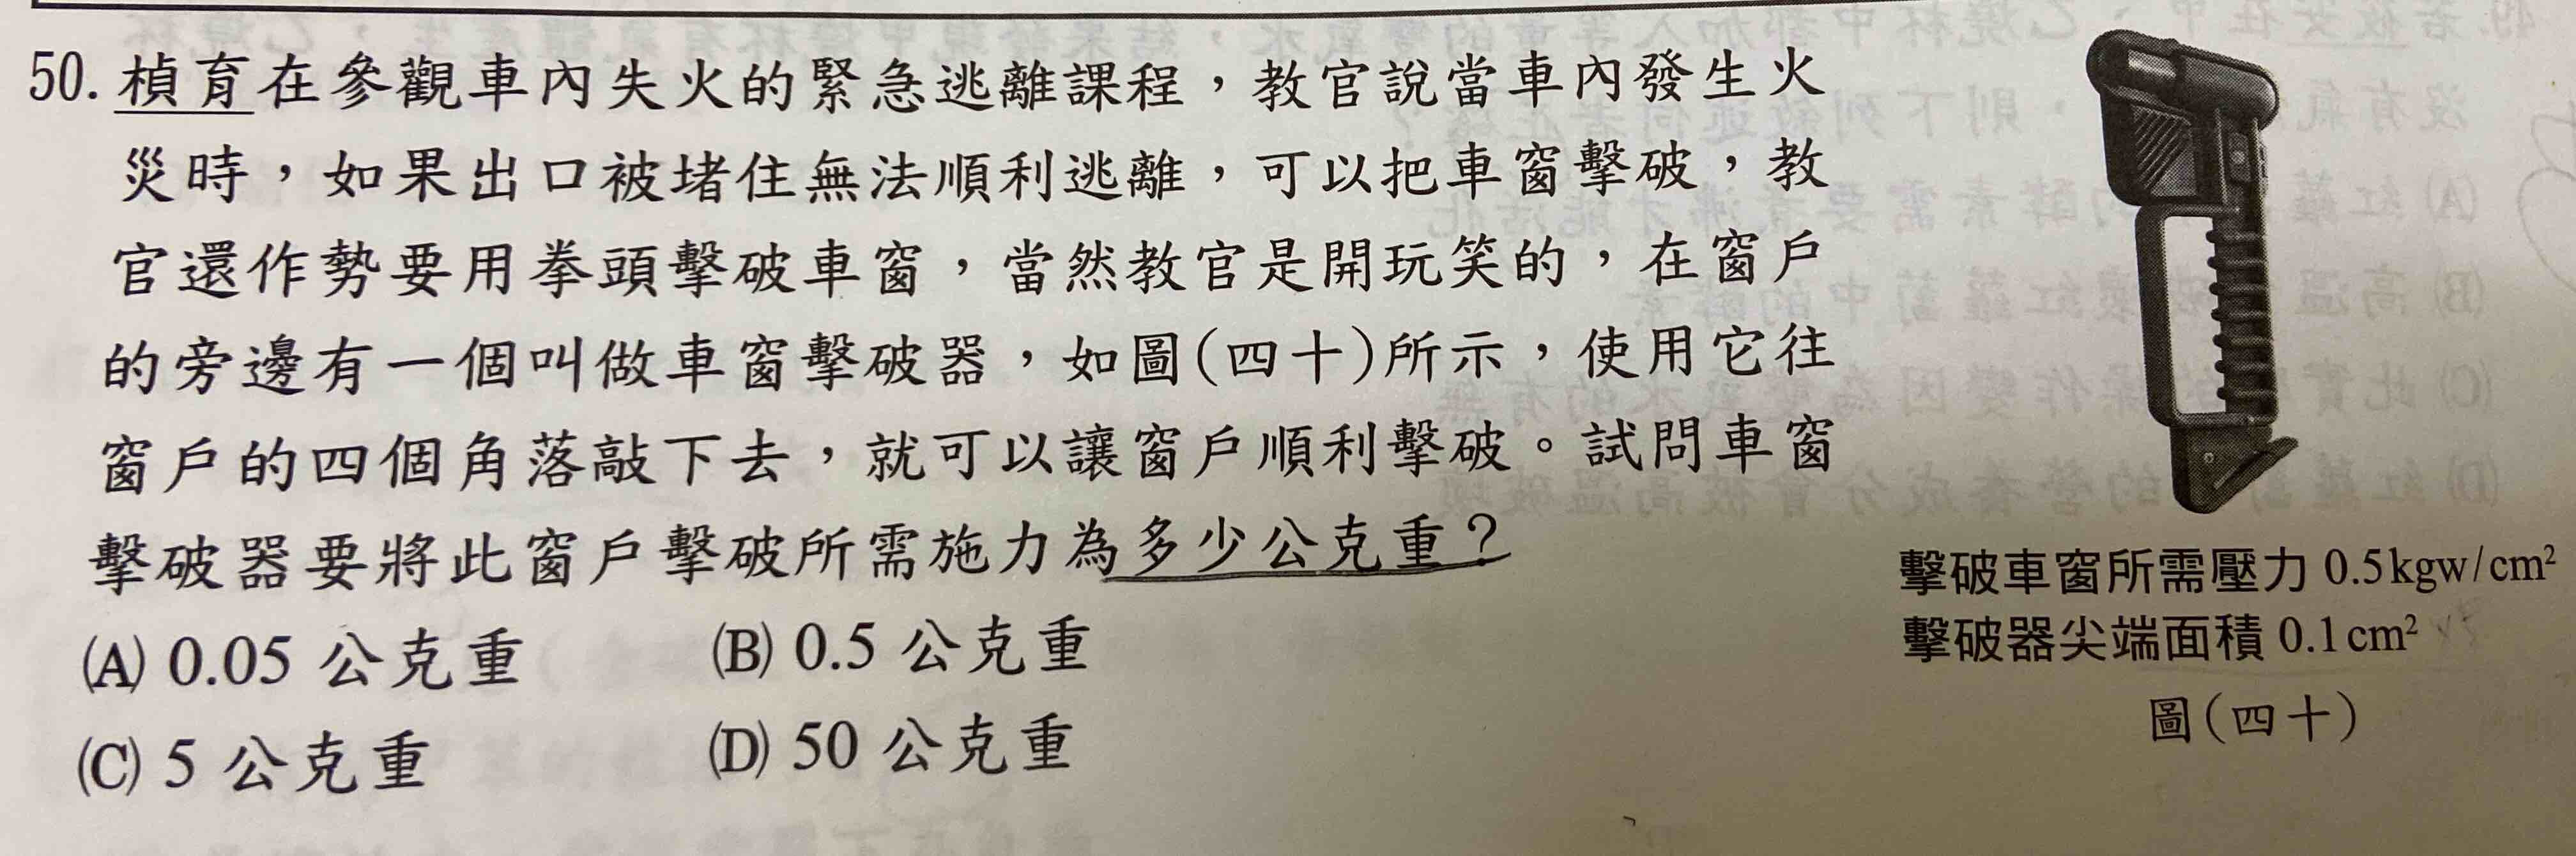 50. 楨育在參觀車內失火的緊急逃離課程，教官說當車內發生火
災時，如果出口被堵住無法順利逃離，可以把車窗擊破，教
官還作勢要用拳頭擊破車窗，當然教官是開玩笑的，在窗戶
的旁邊有一個叫做車窗擊破器，如圖(四十)所示，使用它往
窗戶的四個角落敲下去，就可以讓窗戶順利擊破。試問車窗
擊破器要將此窗戶擊破所需施力為多少公克重？
(A) 0.05 公克重
(B) 0.5 公克重
(C) 5 公克重
(D) 50 公克重
擊破車窗所需壓力 0.5kgw/cm²
擊破器尖端面積 0.1cm²
圖(四十)